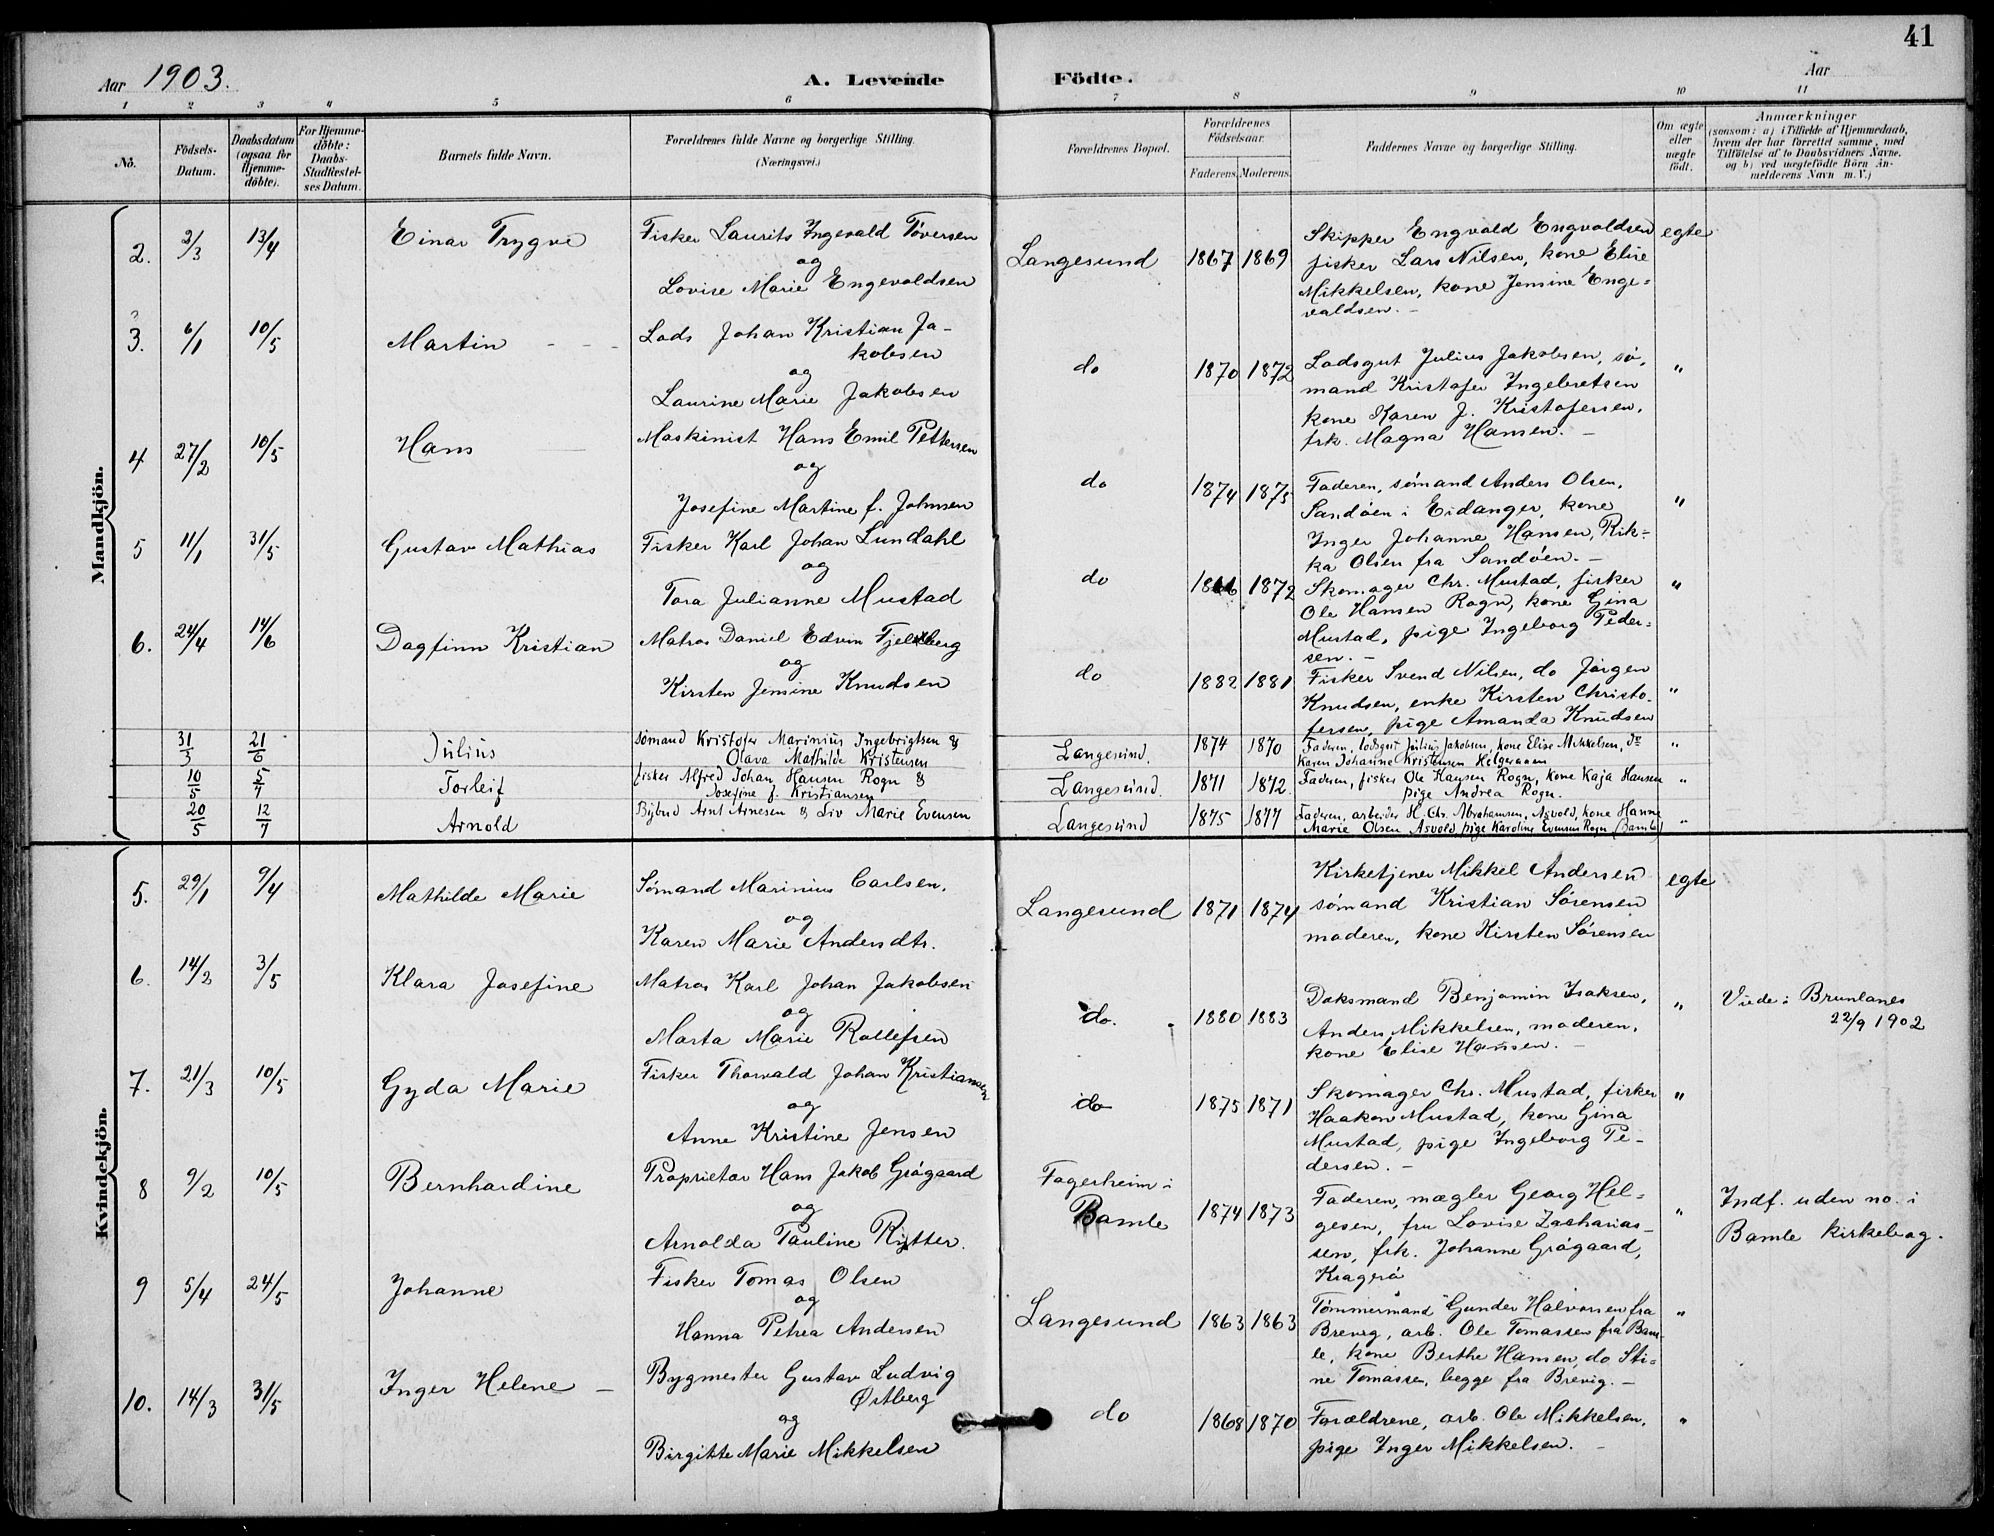 41
Aar 1903.
A. Levende Födte.
Aar
1 2 3 4 5 6 7 8 9 10 11
No.
Födsels-Datum.
Daabsdatum (ogsaa for Hjemme-döbte).
For Hjemme-döbte: Daabs-Stadfæstel-ses Datum.
Barnets fulde Navn.
Forældrenes fulde Navne og borgerlige Stilling.
(Næringsvei.)
Forældrenes Bopæl.
Forældrenes Födselsaar.
Faderens. Moderens.
Faddernes Navne og borgerlige Stilling.
Om ægte eller uægte födt.
Anmærkninger
(saasom: a) i Tilfælde af Hjemmedaab,
hvem der har forrettet samme, med
Tilföielse af to Daabsvidners Navne.
og b) ved uægtefödte Börn An-
melderens Navn m. V.)
Mandkjön.
2. 2/3 13/4 Einar Trygve
Fisker Laurits Ingevald Töversen
og
Lovise Marie Engevaldsen
Langesund 1867 1869
Skipper Engvald Engvaldsen
fisker Lars Nilsen, kone Elise
Mikkelsen, kone Jensine Enge=
valdsen. -
egte
3. 6/1 10/5 Martin - - -
Lods Johan Kristian Ja-
kobsen
og
Laurine Marie Jakobsen
do 1870 1872
Lodsgut Julius Jakobsen, sö,
mand Kristofer Ingebretsen
kone Karen J. Kristofersen,
frk. Magna Hansen. -
"
4 27/2 10/5 Hans
Maskinist Hans Emil Pettersen
og
Josefine Martine f. Johnsen
do 1874 1875
Faderen, sömand Anders Olsen,
Sandöen i Eidanger, kone
Inger Johanne Hansen, Rik-
ka Olsen fra Sandöen. -
"
5 11/1 31/5 Gustav Mathias
Fisker Karl Johan Lundahl
og
Tora Julianne Mustad
do 1872
Skomager Chr. Mustad, fisker
Ole Hansen Rogn, kone Gina
Mustad, pige Ingeborg Peder-
sen. -
"
6. 24/4 14/6 Dagfinn Kristian
Matros Daniel Edvin Fjeldberg
og
Kirsten Jensine Knudsen
do 1882 1881
Fisker Svend Nilsen, do Jörgen
Knudsen, enke Kirsten Christo-
fersen, pige Amanda Knudsen
"
31/3 21/6 Julius
Sömand Kristofer Marinius Ingebrigtsen &
Olava Mathilde Kristensen
Langesund. 1874 1870
Faderen, lodsgut Julius Jakobsen, kone Elise Mikkelsen, do
Karen Johanne Kristensen Helgeraaen
"
10/5 5/7 Torleif
fisker Alfred Johan Hansen Rogn &
Josefine f. Kristiansen
Langesund. 1871 1872.
Faderen, fisker Ole Hansen Rogn, kone Kaja Hansen
pige Andrea Rogn.
"
20/5 12/7 Arnold
Bybud Arnt Arnesen & Liv Marie Evensen
Langesund 1875 1877
Faderen, arbeider H. Chr. Abrahamsen, Asvold, kone Hanne
Marie Olsen Asvold, pige Karoline Evensen Rogn (Bamle)
"
Kvindekjön.
5. 29/1 9/4 Mathilde Marie
Sömand Marinius Carlsen.
og
Karen Marie Andersdtr.
Langesund 1871 1874
Kirketjener Mikkel Andersen
sömand Kristian Sörensen
moderen, kone Kirsten Sörensen
egte
6. 14/2 3/5 Klara Josefine
Matros Karl Johan Jakobsen
og
Marta Marie Rollefsen
do. 1880 1883
Doksmand Benjamin Isaksen,
Anders Mikkelsen, moderen,
kone Elise Hansen. -
"
Viede i Brunlanes
22/9 1902
7. 21/3 10/5 Gyda Marie
Fisker Thorvald Johan Kristiansen
og
Anne Kristine Jensen
do 1875 1871
Skomager Chr. Mustad, fisker
Haakon Mustad, kone Gina
Mustad, pige Ingeborg Pe-
dersen. -
"
8 9/2 10/5 Bernhardine
Proprietær Hans Jakob Grögaard
og
Arnolda Pauline Rytter.
Fagerheim i
Bamle 1874 1873
Faderen, mægler Georg Hel-
gesen, fru Lovise Zacharias-
sen, frk. Johanne Grögaard,
Kragerö
"
Indf. uden no. i
Bamle kirkebog.
9 5/4 24/5 Johanne
Fisker Tomas Olsen
og
Hanna Petrea Andersen
Langesund 1863 1863
Tömmermand Gunder Halvorsen fra
Brevig, arb. Ole Tomassen fra Bam-
le, kone Berthe Hansen, do Sti=
ne Tomassen, begge fra Brevig. -
"
10. 14/3 31/5 Inger Helene -
Bygmester Gustav Ludvig
Østberg
og
Birgitte Marie Mikkelsen
do 1868 1870
Forældrene, arb. Ole Mikkelsen,
pige Inger Mikkelsen. -
"